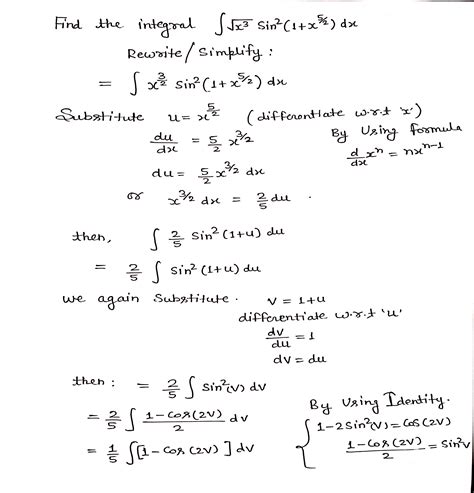 Find the integral ∫√x³ Sin²(1+x^5/2) dx
Rewrite/Simplify :
= ∫ x^3/2 Sin²(1+x^5/2) dx
Substitute u = x^5/2 (differentiate w.r.t 'x')
du/dx = 5/2 x^3/2 By Using formula
d/dx x^n = nx^n-1
du = 5/2 x^3/2 dx
or x^3/2 dx = 2/5 du .
then, ∫ 2/5 Sin²(1+u) du
= 2/5 ∫ Sin²(1+u) du
we again Substitute. v = 1+u
differentiate w.r.t 'u'
dv/du = 1
dv = du
then : = 2/5 ∫ Sin²(v) dv
By Using Identity.
= 2/5 ∫ 1-Cos(2v)/2 dv
1-2Sin²(v) = Cos(2v)
= 1/5 ∫[1-Cos(2v)] dv
1-Cos(2v)/2 = Sin²v